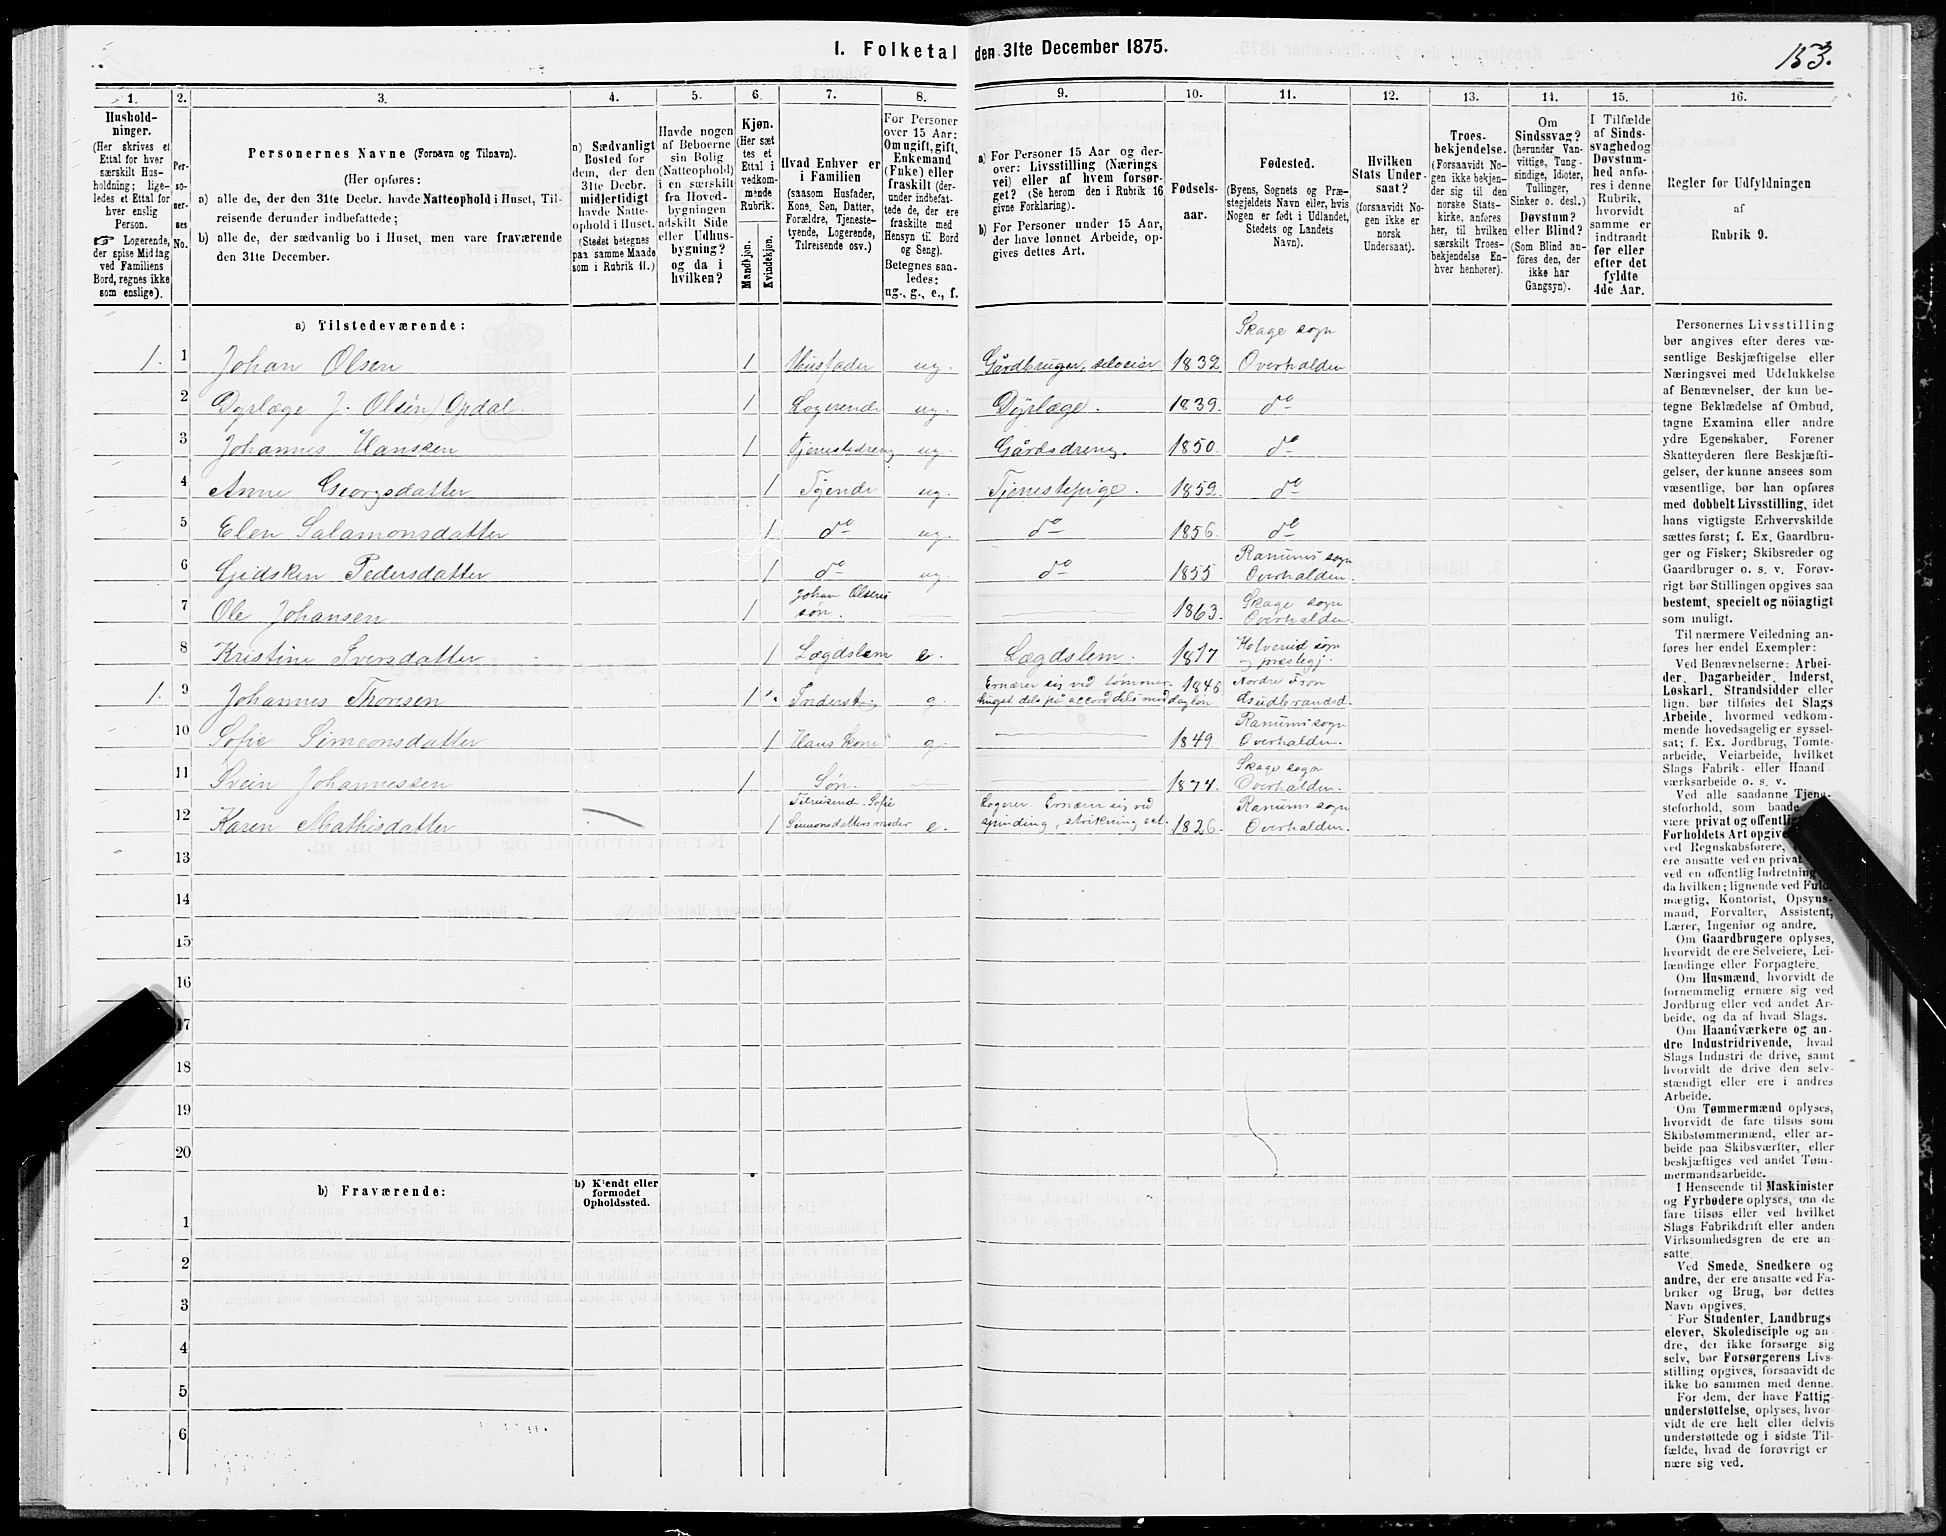 1. Folketal den 31te December 1875.
153.
1.
2.
3.
4.
5.
6.
7.
8.
9.
10.
11.
12.
13.
14.
15.
16.
Hushold-
ninger.
(Her skrives et
Ettal for hver
særskilt Hus-
holdning; lige-
ledes et Ettal for
hver enslig
Person.
☞ Logerende,
der spise Middag
ved Familiens
Bord, regnes ikke
som enslige).
Per-
so-
ner-
nes
No.
Personernes Navne (Fornavn og Tilnavn).
(Her opføres:
a) alle de, der den 31te Decbr. havde Natteophold i Huset, Til-
reisende derunder indbefattede;
b) alle de, der sædvanlig bo i Huset, men vare fraværende
den 31te December.
a) Sædvanligt
Bosted for
dem, der den
31te Decbr.
midlertidigt
havde Natte-
ophold i Huset.
(Stedet betegnes
paa samme Maade
som i Rubrik 11.)
Havde nogen
af Beboerne
sin Bolig
(Natteophold)
i en særskilt
fra Hoved-
bygningen
adskilt Side
eller Udhus-
bygning?
og da i
hvilken?
Kjøn.
(Her sæt
tes et
Ettal i
vedkom-
mende
Rubrik.
Mandkjøn.
Kvindekjøn.
Hvad Enhver er
i Familien
(saasom Husfader,
Kone, Søn, Datter,
Forældre, Tjeneste-
tyende, Logerende,
Tilreisende osv.)
For Personer
over 15 Aar:
Om ugift, gift,
Enkemand
(Enke) eller
fraskilt (der-
under indbefat-
tede de, der ere
fraskilte med
Hensyn til Bord
og Seng).
Betegnes saa-
ledes:
ug., g., e., f.
a) For Personer 15 Aar og der-
over: Livsstilling (Nærings
vei) eller af hvem forsør-
get? (Se herom den i Rubrik 16
givne Forklaring).
b) For Personer under 15 Aar,
der have lønnet Arbeide, op-
gives dettes Art.
Fødsels-
aar.
Fødested.
(Byens, Sognets og Præ-
stegjeldets Navn eller, hvis
Nogen er født i Udlandet,
Stedets og Landets
Navn).
Hvilken
Stats Under-
saat?
(forsaavidt No-
gen ikke er
norsk
Undersaat).
Troes-
bekjendelse.
(Forsaavidt No-
gen ikke bekjen-
der sig til den
norske Stats-
kirke, anføres
her, til hvilken
særskilt Troes-
bekjendelse En-
hver henhører).
Om
Sindssvag?
(herunder Van-
vittige, Tung-
sindige, Idioter,
Tullinger,
Sinker o. desl.)
Døvstum?
eller Blind?
(Som Blind an-
føres den, der
ikke har
Gangsyn).
I Tilfælde
af Sinds-
svaghed og
Døvstum-
hed anfø-
res i denne
Rubrik,
hvorvidt
samme er
indtraadt
før eller
efter det
fyldte
4de Aar.
Regler for Udfyldningen
af
Rubrik 9.
a) Tilstedeværende:
1. 1 Johan Olsen 1 Husfader ug. Gårdbruger, selveier 1832 Skage sogn Overhalden
2 Dyrlæge J. Olsen Opdal. 1 Logerende ug. Dyrlæge. 1839. do
3 Johannes Hansken 1 Tjenestedreng ug. Gårdsdreng. 1850. do
4 Anne Georgsdatter 1 Tyende ug. Tjenestepige. 1852. do
5 Elen Salamonsdatter 1 do ug. do 1856. do
6 Gidsken Pedersdatter 1 do ug. do 1855 Ranums sogn Overhalden.
7 Ole Johansen 1 Johan Olsens søn. 1863. Skage sogn Overhalden.
8 Kristine Iversdatter 1 Lægdslem e. Lægdslem. 1817 Kolvereid sogn og prestegj.
1. 9 Johannes Thoresen 1 Inderst g. Ernærer sig ved tømmer- huget dels på accord dels mod dagløn 1846 Nordre Fron Gudbrandsd.
10 Sofie Simeonsdatter 1 Hans kone g. 1849. Ranums sogn Overhalden.
11 Svein Johannessen 1 Søn. 1874. Skage sogn Overhalden.
12 Karen Mathisdatter 1 Tilreisende. Sofie Simeonsdatters moder e. Logerer. Ernærer sig ved spinding, strikning ect. 1826. Ranums sogn Overhalden.
13
14
15
16
17
18
19
20
b) Fraværende:
b) Kjendt eller
formodet
Opholdssted.
1
2
3
4
5
6
Personernes Livsstilling
bør angives efter deres væ-
sentlige Beskjæftigelse eller
Næringsvei med Udelukkelse
af Benævnelser, der kun be-
tegne Beklædelse af Ombud,
tagne Examina eller andre
ydre Egenskaber. Forener
Skatteyderen flere Beskjæfti-
gelser, der kunne ansees som
væsentlige, bør han opføres
med dobbelt Livsstilling, idet
hans vigtigste Erhvervskilde
sættes først; f. Ex. Gaardbru-
ger og Fisker; Skibsreder og
Gaardbruger o. s. v. Forøv-
rigt bør Stillingen opgives saa
bestemt, specielt og nöiagtigt
som muligt.
Til nærmere Veiledning an-
føres her endel Exempler:
Ved Benævnelserne: Arbei-
der, Dagarbeider, Inderst,
Løskarl, Strandsidder eller
lign. bør tilføies det Slags
Arbeide, hvormed vedkom-
mende hovedsagelig er syssel-
sat; f. Ex. Jordbrug, Tomte-
arbeide, Veiarbeide, hvilket
Slags Fabrik- eller Haand
værksarbeide o. s. v.
Ved alle saadanne Tjene-
steforhold, som baade
være privat og offentlig
Forholdets Art opgives
ved Regnskabsførere,
ere ansatte ved en privat
ved en offentlig Indretning
da hvilken; lignende ved Fuld-
mægtig, Kontorist, Opsyns-
mand, Forvalter, Assistent,
Lærer, Ingeniør og andre.
Om Gaardbrugere oplyses,
hvorvidt de ere Selveiere, Lei-
lændinge eller Forpagtere.
Om Husmænd, hvorvidt de
fornemmelig ernære sig ved
Jordbrug eller ved andet Ar-
beide, og da af hvad Slags.
Om Haandværkere og an-
dre Industridrivende, hvad
Slags Industri de drive, samt
hvorvidt de drive den selv-
stændigt eller ere i andres
Arbeide.
Om Tømmermænd oplyses,
hvorvidt de fare tilsøs som
Skibstømmermænd, eller ar-
beide paa Skibsværfter, eller
beskjæftiges ved andet Tøm-
mermandsarbeide.
I Henseende til Maskinister
og Fyrbødere oplyses, om de
fare tilsøs eller ved hvilket
Slags Fabrikdrift eller anden
Virksomhedsgren de ere an-
satte.
Ved Smede, Snedkere og
andre, der ere ansatte ved Fa-
briker og Brug, bør dettes
Navn opgives.
For Studenter, Landbrugs
elever, Skoledisciple og an-
dre, der ikke forsørge sig
selv, bør Forsørgerens Livs-
stilling opgives, forsaavidt de
ikke bo sammen med denne.
For dem, der have Fattig-
understøttelse, oplyses, hvor-
vidt de ere helt eller delvis
understøttede og i sidste Til-
fælde, hvad de forøvrigt er
nære sig ved.